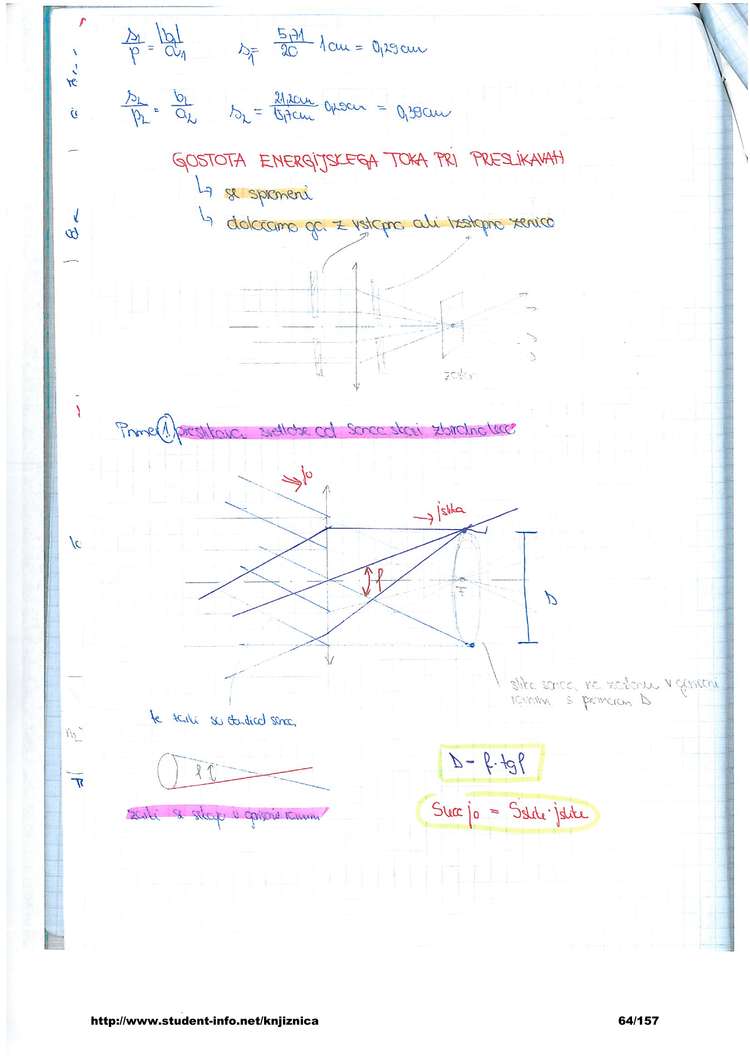 s₁/p = |b₁|/a₁   s₁ = 5,71/20 1cm = 0,29cm
s₂/p₂ = b₂/a₂   s₂ = 21,2cm/15,7cm 0,29cm = 0,39cm
GOSTOTA ENERGIJSKEGA TOKA PRI PRESLIKAVAH
↳ se spremeni
↳ določamo ga z vstopno ali izstopno zenico
zaslon
Primer 1 preslikava svetlobe od sonca skozi zbiralno leco
j₀
jslika
φ
D
slika sonca na zaslonu v goriščni
ravnini s premerom D
te žarki so od sonca
φ
D = f·tgφ
žarki se sekajo v goriščni ravnini
Slece j₀ = Sslike·jslike
http://www.student-info.net/knjiznica
64/157